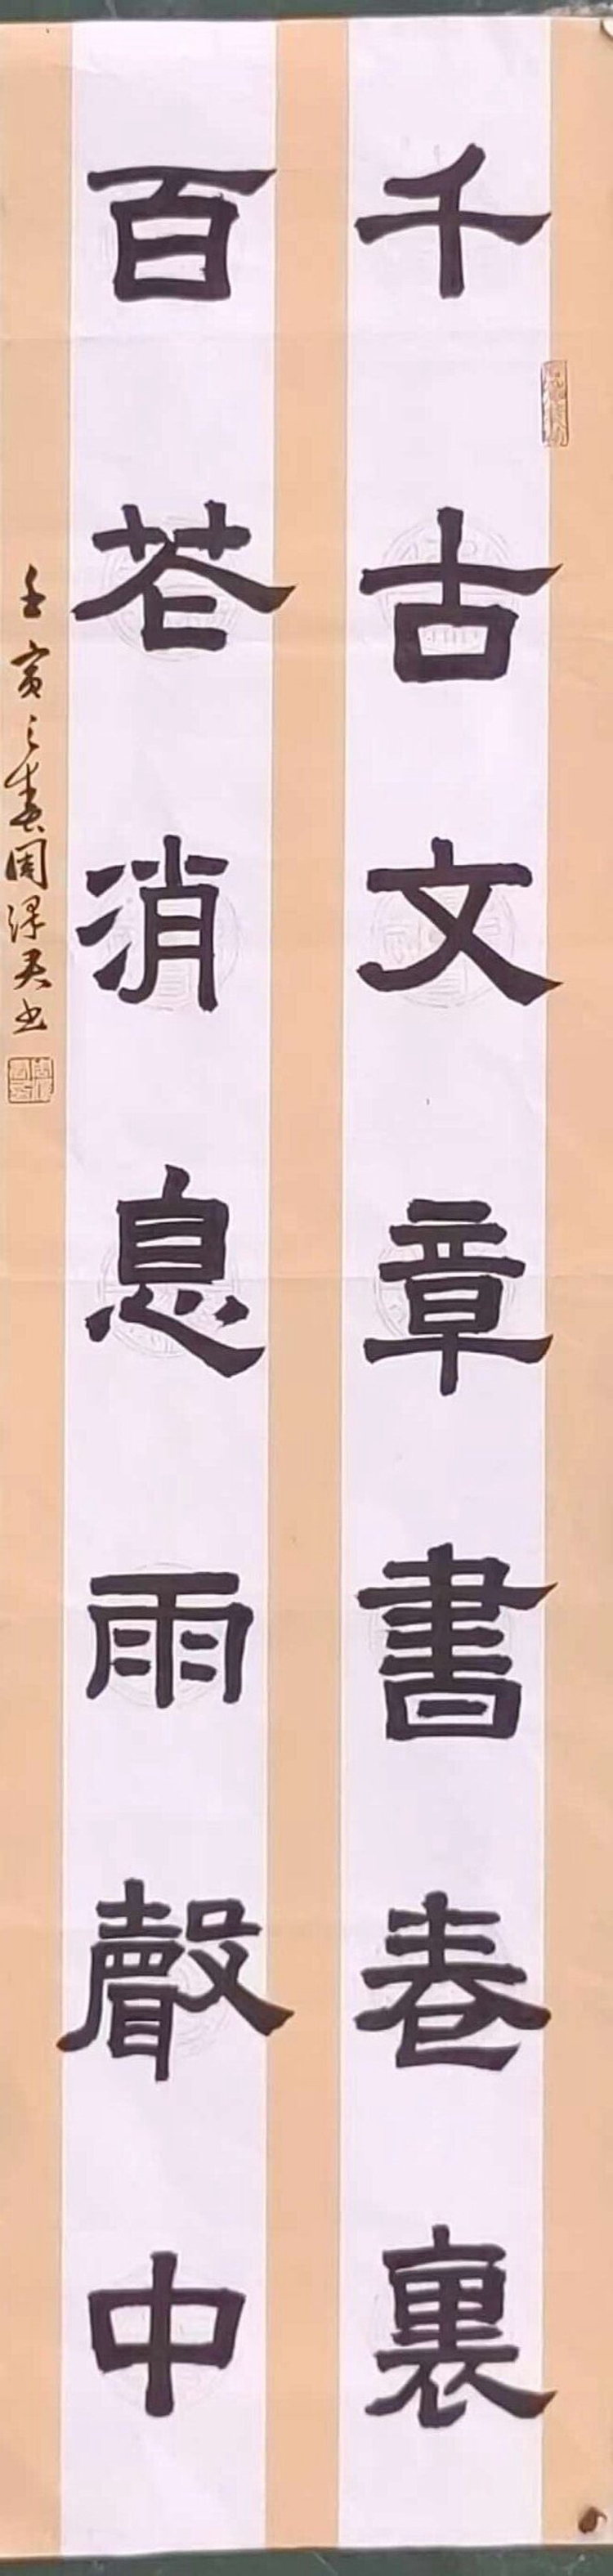 千古文章書卷裏
百花消息雨聲中
壬寅之春周澤君书